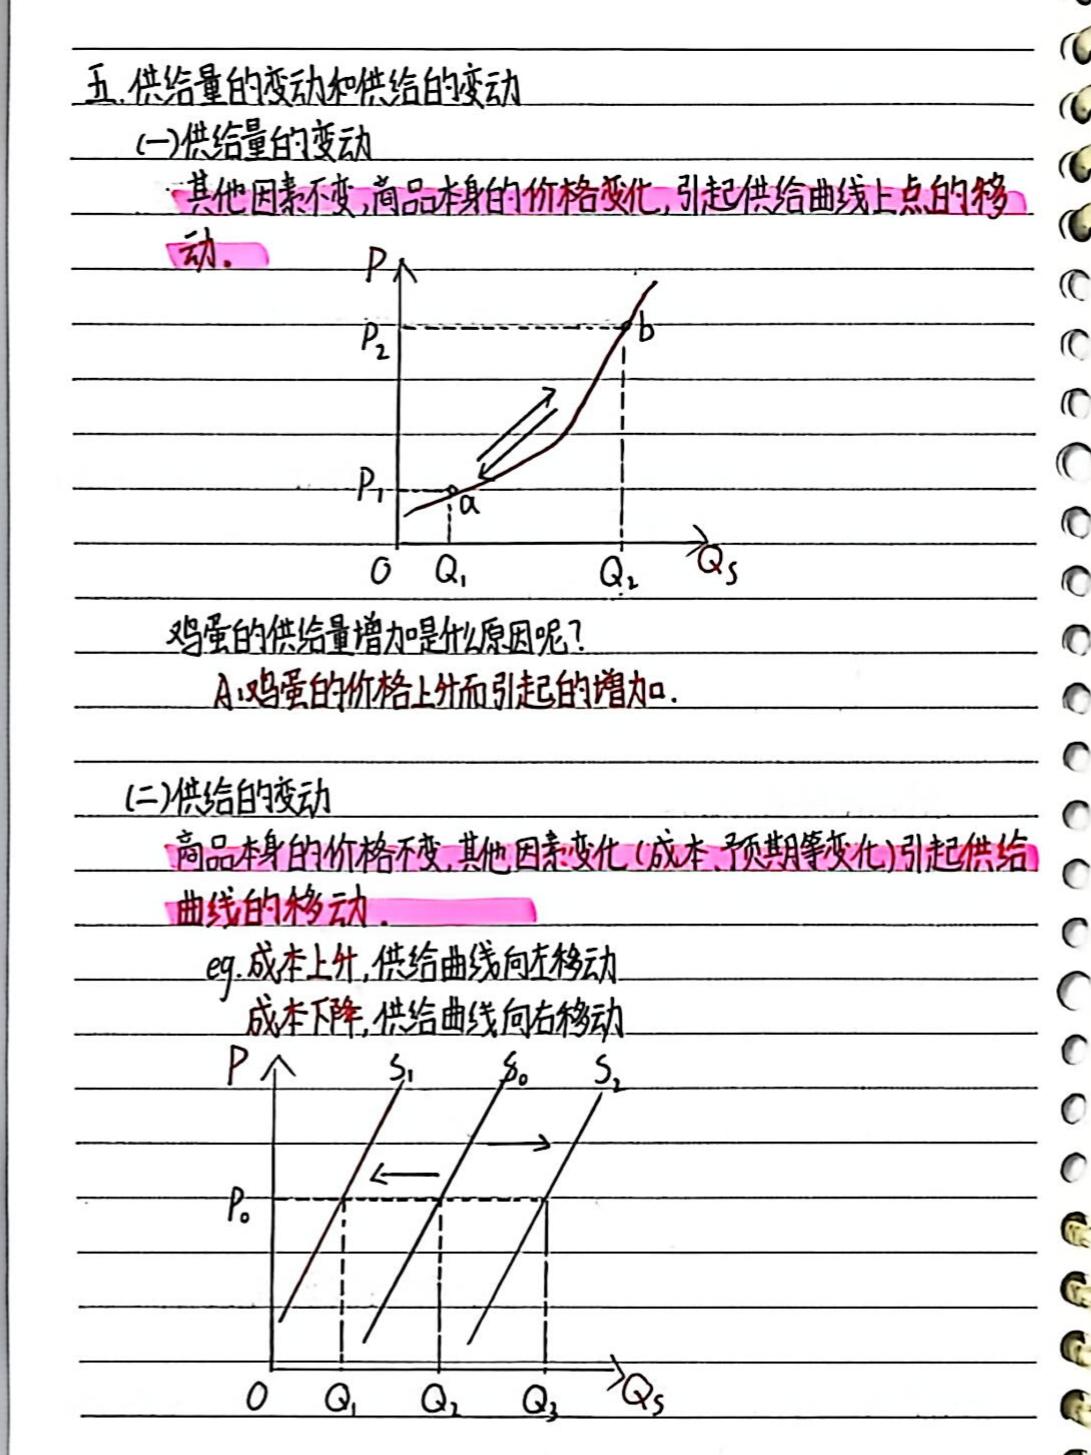 五.供给量的变动和供给的变动
(一)供给量的变动
其他因素不变,商品本身的价格变化,引起供给曲线上点的移
动.
P
P₂
b
P₁
a
O
Q₁
Q₂
Qs
鸡蛋的供给量增加是什么原因呢?
A:鸡蛋的价格上升而引起的增加.
(二)供给的变动
商品本身的价格不变,其他因素变化(成本、预期等变化)引起供给
曲线的移动.
eg.成本上升,供给曲线向左移动
成本下降,供给曲线向右移动
P
S₁
S₀
S₂
P₀
O
Q₁
Q₂
Q₃
Qs